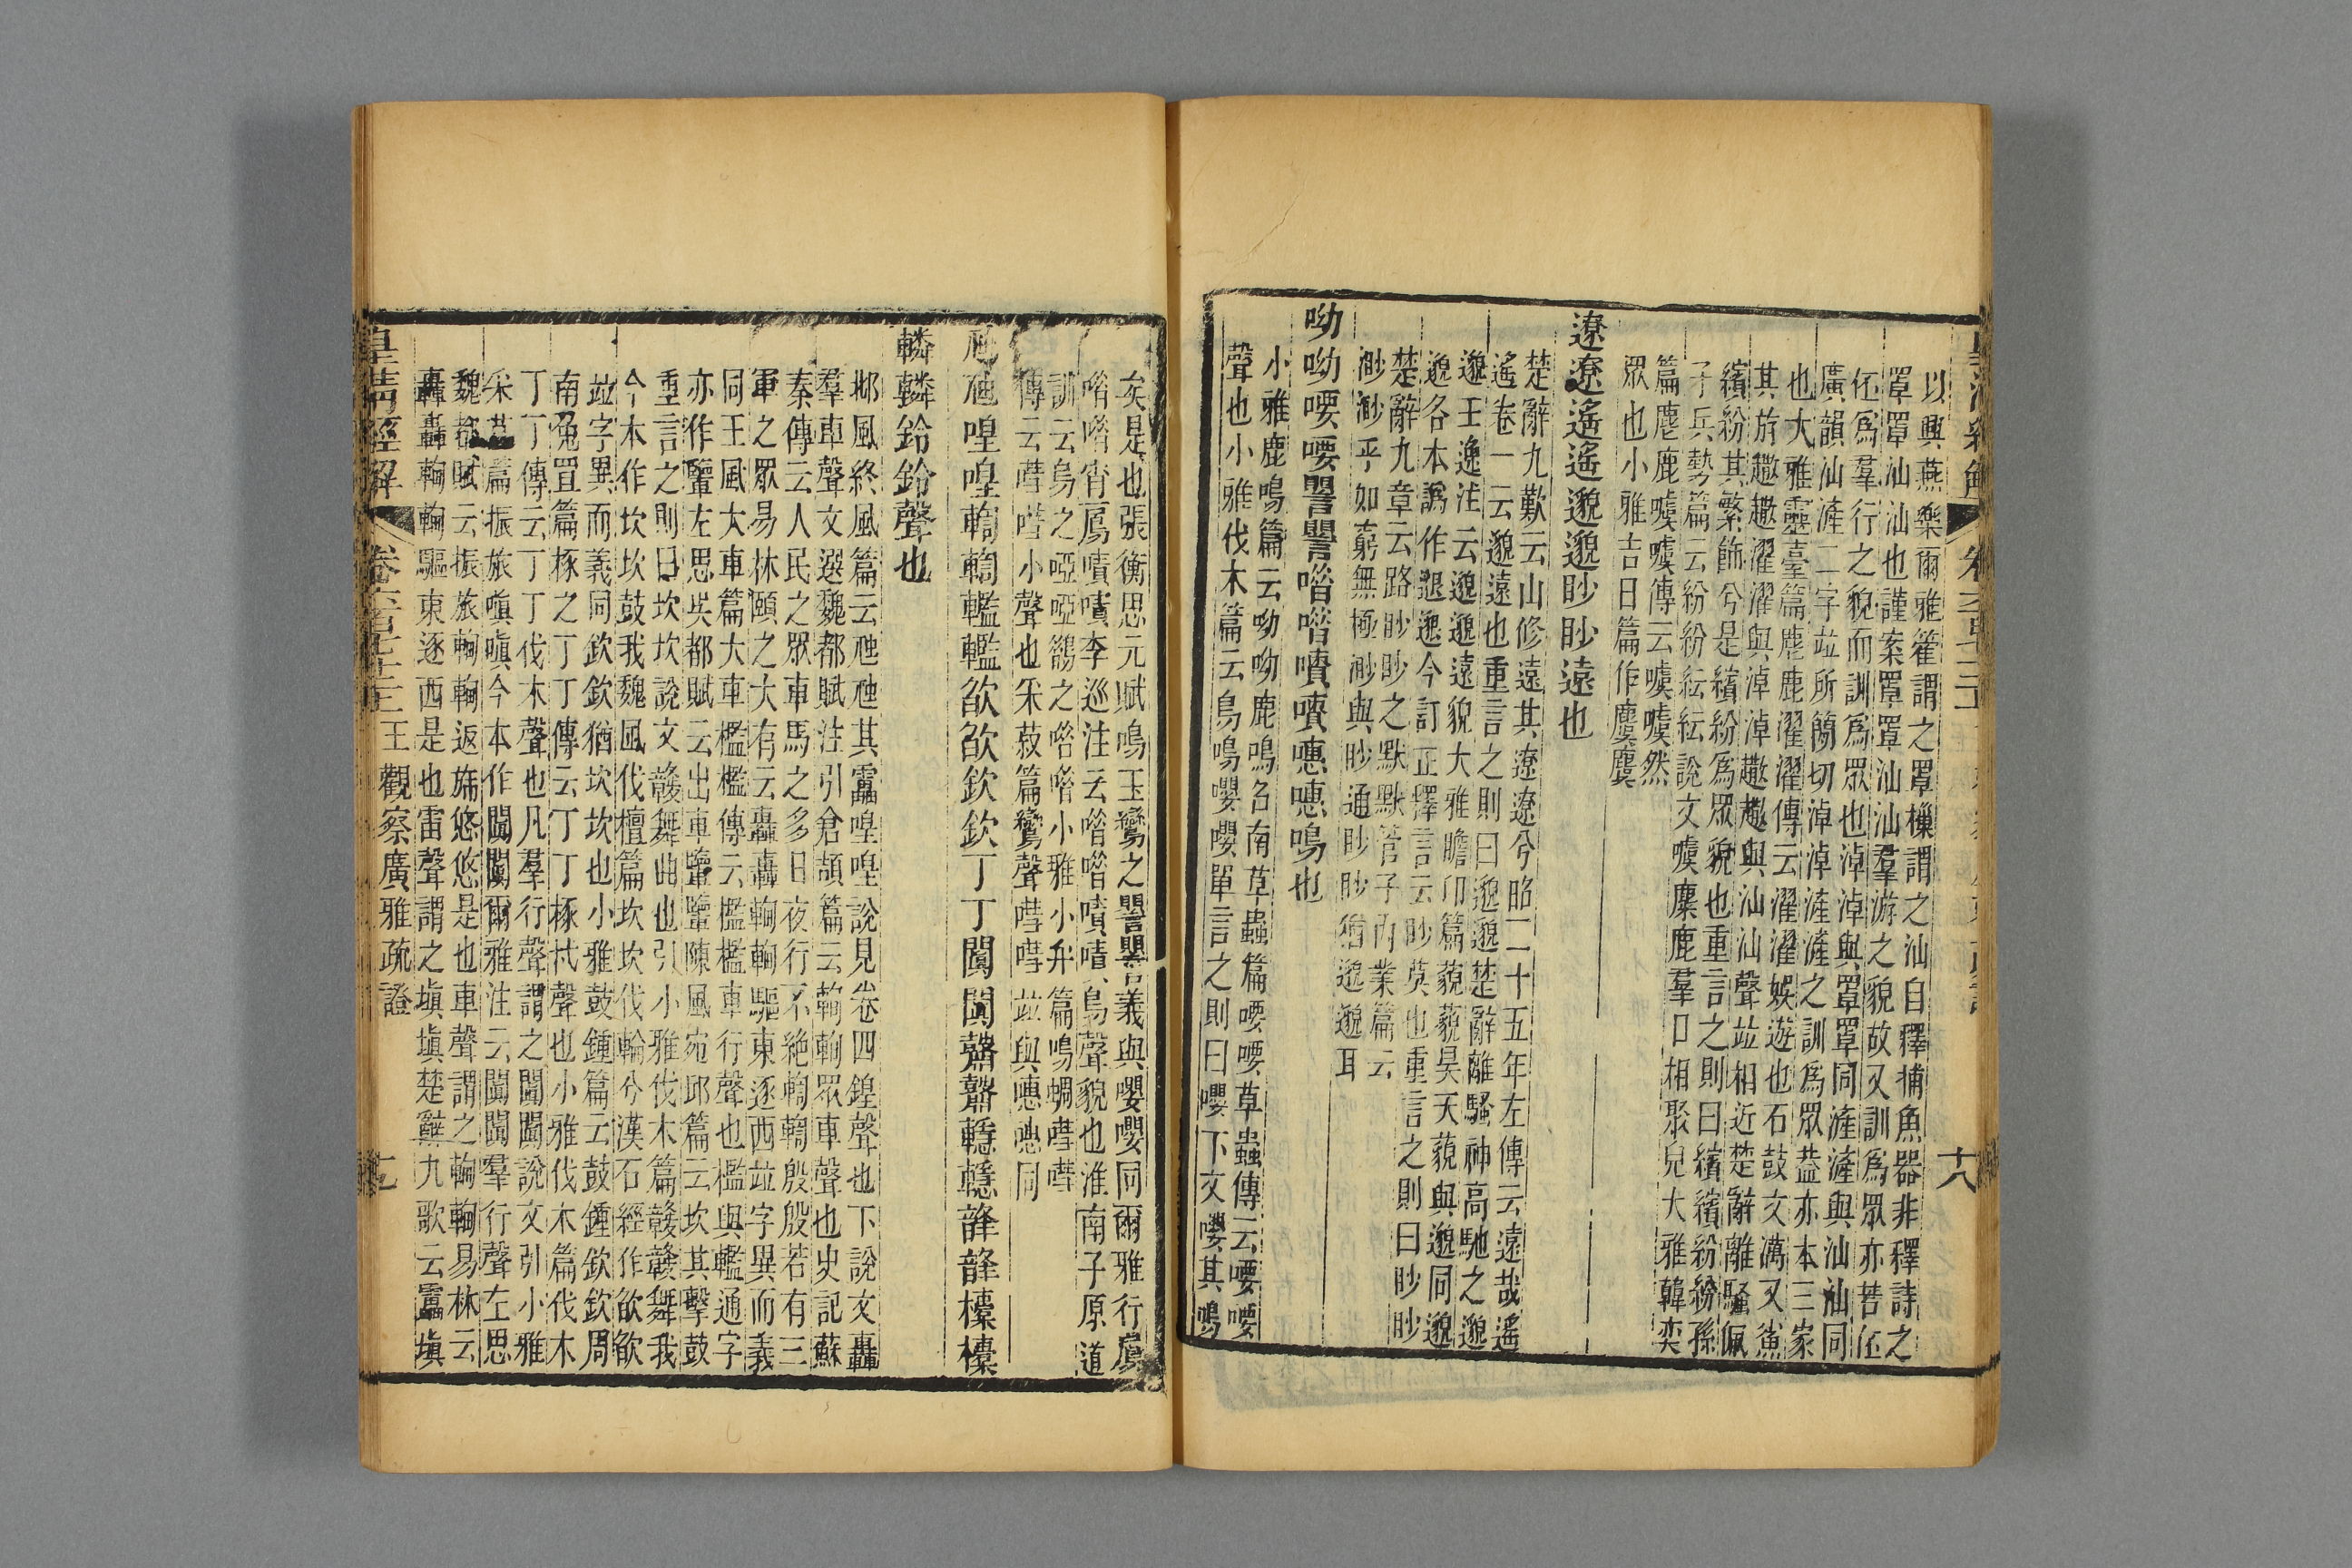 以興燕樂爾雅䉶謂之罩樔謂之汕自釋捕魚器非釋詩之
罩罩汕汕也謹案罩罩汕汕羣游之貌故又訓爲眾亦若伾
伾爲羣行之貌而訓爲眾也淖淖與罩罩同滻滻與汕汕同
廣韻汕滻二字竝所簡切淖淖滻滻之訓爲眾葢亦本三家
也大雅靈臺篇麀鹿濯濯傳云濯濯娛遊也石鼓文澫又鯊
其斿趣趣濯濯與淖淖趣趣與汕汕聲竝相近楚辭離騷佩
繽紛其繁飾兮是繽紛爲眾貌也重言之則曰繽繽紛紛孫
子兵勢篇云紛紛紜紜說文噳麋鹿羣口相聚皃大雅韓奕
篇麀鹿噳噳傳云噳噳然
眾也小雅吉日篇作麌麌
遼遼遙遙邈邈眇眇遠也
楚辭九歎云山修遠其遼遼兮昭二十五年左傳云遠哉遙
遙卷一云邈遠也重言之則曰邈邈楚辭離騷神高馳之邈
邈王逸注云邈邈遠貌大雅瞻卬篇藐藐昊天藐與邈同邈
邈各本譌作邈邈今訂正釋言云眇莫也重言之則曰眇眇
楚辭九章云路眇眇之默默管子內業篇云
渺渺乎如窮無極渺與眇通眇眇猶邈邈耳
呦呦喓喓譻譻喈喈嘖嘖嘒嘒鳴也
小雅鹿鳴篇云呦呦鹿鳴召南草蟲篇喓喓草蟲傳云喓喓
聲也小雅伐木篇云鳥鳴嚶嚶單言之則曰嚶下文嚶其鳴
矣是也張衡思元賦鳴玉鸞之譻譻義與嚶嚶同爾雅行鳸
唶唶宵鳸嘖嘖李巡注云唶唶嘖嘖鳥聲貌也淮南子原道
訓云鳥之啞啞鵲之唶唶小雅小弁篇鳴蜩嘒嘒
傳云嘒嘒小聲也采菽篇鸞聲嘒嘒竝與嘒嘒同
虺虺喤喤輷輷轞轞欿欿欽欽丁丁闐闐鼘鼘轋轋韸韸橐橐
轔轔鈴鈴聲也
邶風終風篇云虺虺其靁喤喤說見卷四鍠聲也下說文轟
羣車聲文選魏都賦注引倉頡篇云輷輷眾車聲也史記蘇
秦傳云人民之眾車馬之多日夜行不絕輷輷殷殷若有三
軍之眾易林頤之大有云轟轟輷輷驅東逐西竝字異而義
同王風大車篇大車檻檻傳云檻檻車行聲也檻與轞通字
亦作轞左思吳都賦云出車轞轞陳風宛邱篇云坎其擊鼓
重言之則曰坎坎說文竷舞曲也引小雅伐木篇竷竷舞我
今本作坎坎鼓我魏風伐檀篇坎坎伐輪兮漢石經作欿欿
竝字異而義同欽欽猶坎坎也小雅鼓鍾篇云鼓鍾欽欽周
南兔罝篇椓之丁丁傳云丁丁椓杙聲也小雅伐木篇伐木
丁丁傳云丁丁伐木聲也凡羣行聲謂之闐闐說文引小雅
采芑篇振旅嗔嗔今本作闐闐爾雅注云闐闐羣行聲左思
魏都賦云振旅輷輷返旆悠悠是也車聲謂之輷輷易林云
轟轟輷輷驅東逐西是也雷聲謂之塡塡楚辭九歌云靁塡
皇清經解 卷六百七十二 王觀察廣雅疏證